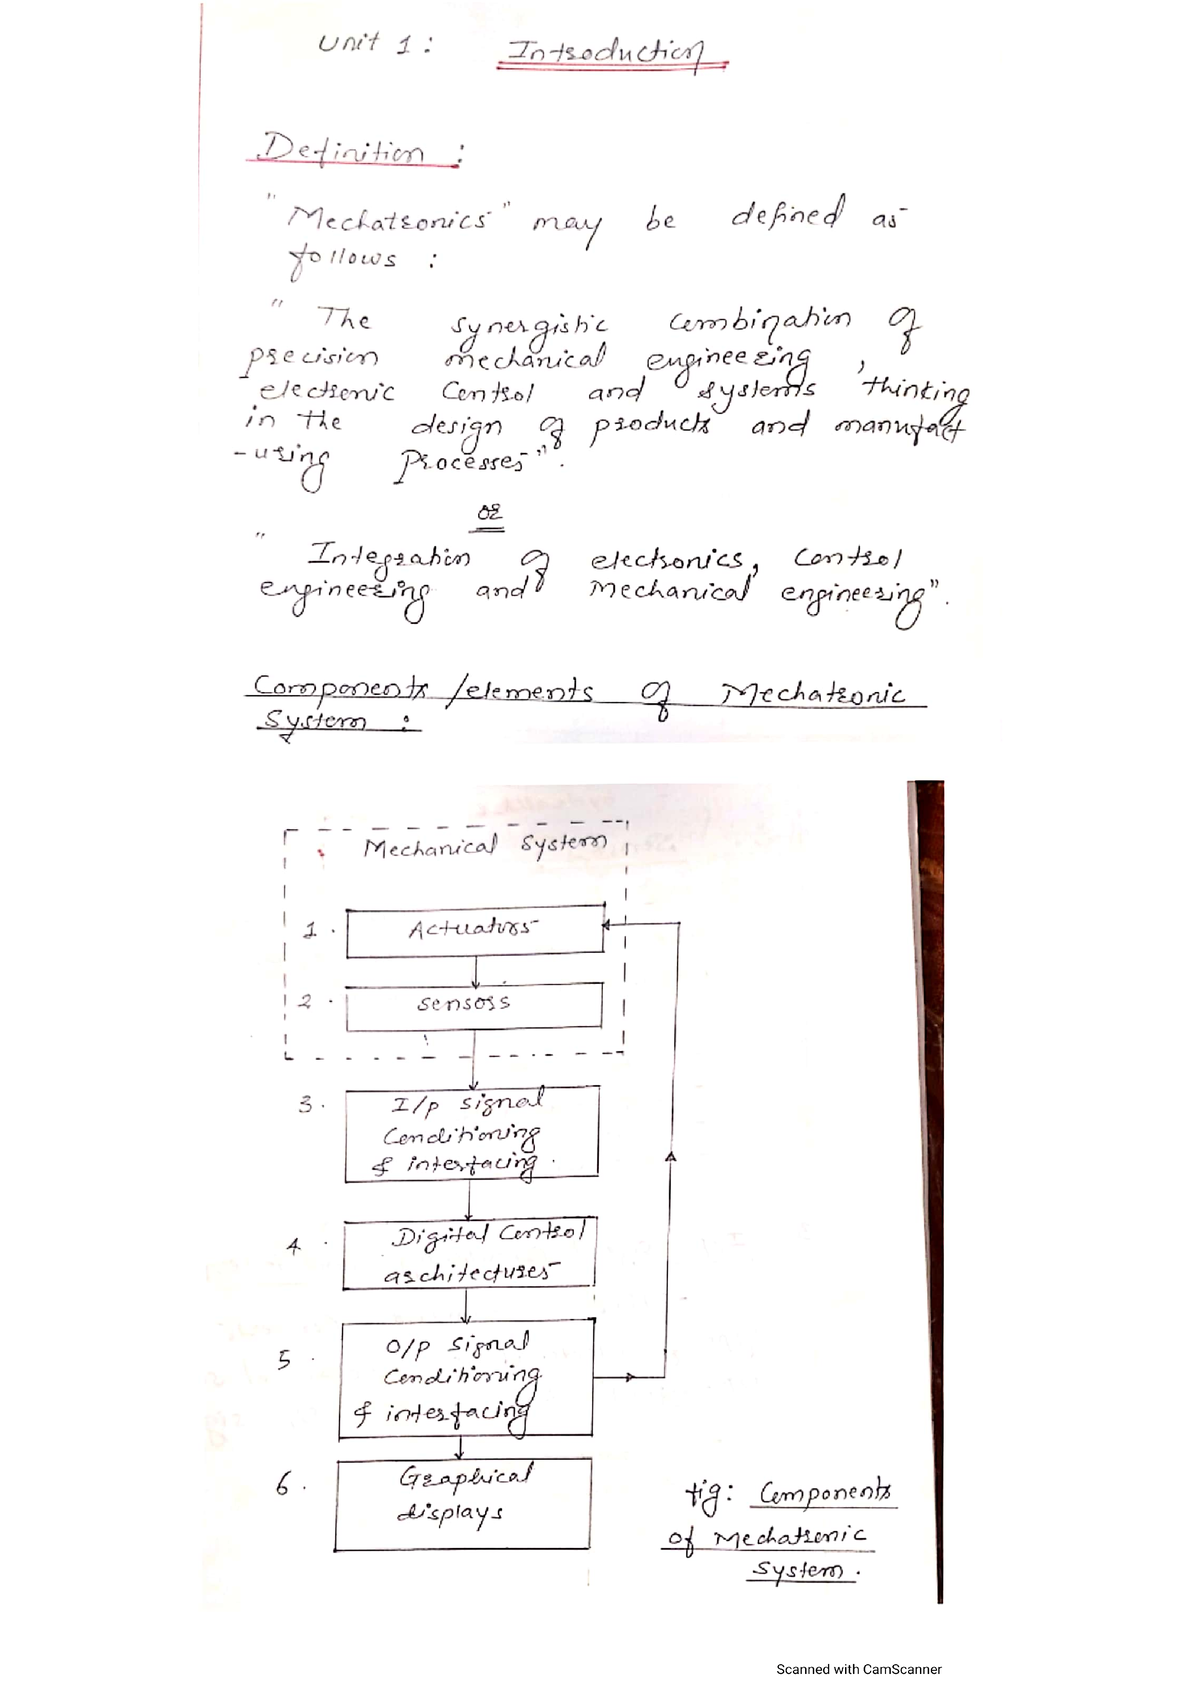 Unit 1 : Introduction
Definition :
"Mechatronics" may be defined as
follows :
" The synergistic combination of
precision mechanical engineering ,
electronic Control and systems thinking
in the design of products and manufact
-uring Processes".
or
" Integration of electronics, Control
engineering and Mechanical engineering".
Components /elements of Mechatronic
System :
Mechanical System
1 . Actuators
2 . Sensors
3 . I/p signal
Conditioning
& interfacing .
4 . Digital Control
architectures
5 . O/p signal
Conditioning
& interfacing
6 . Graphical
displays
fig: Components
of Mechatronic
System .
Scanned with CamScanner